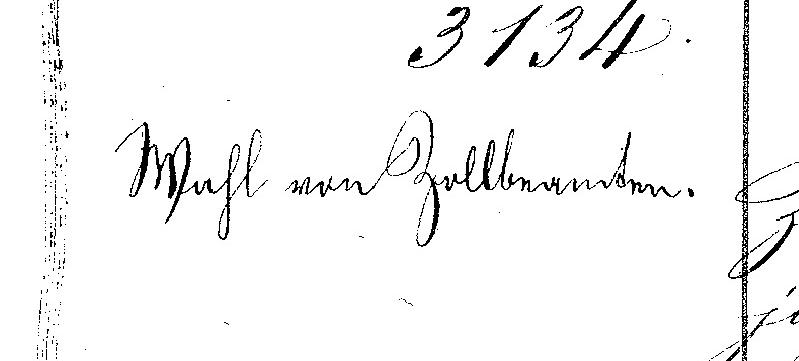 3134.
Wahl von Zollbeamten.